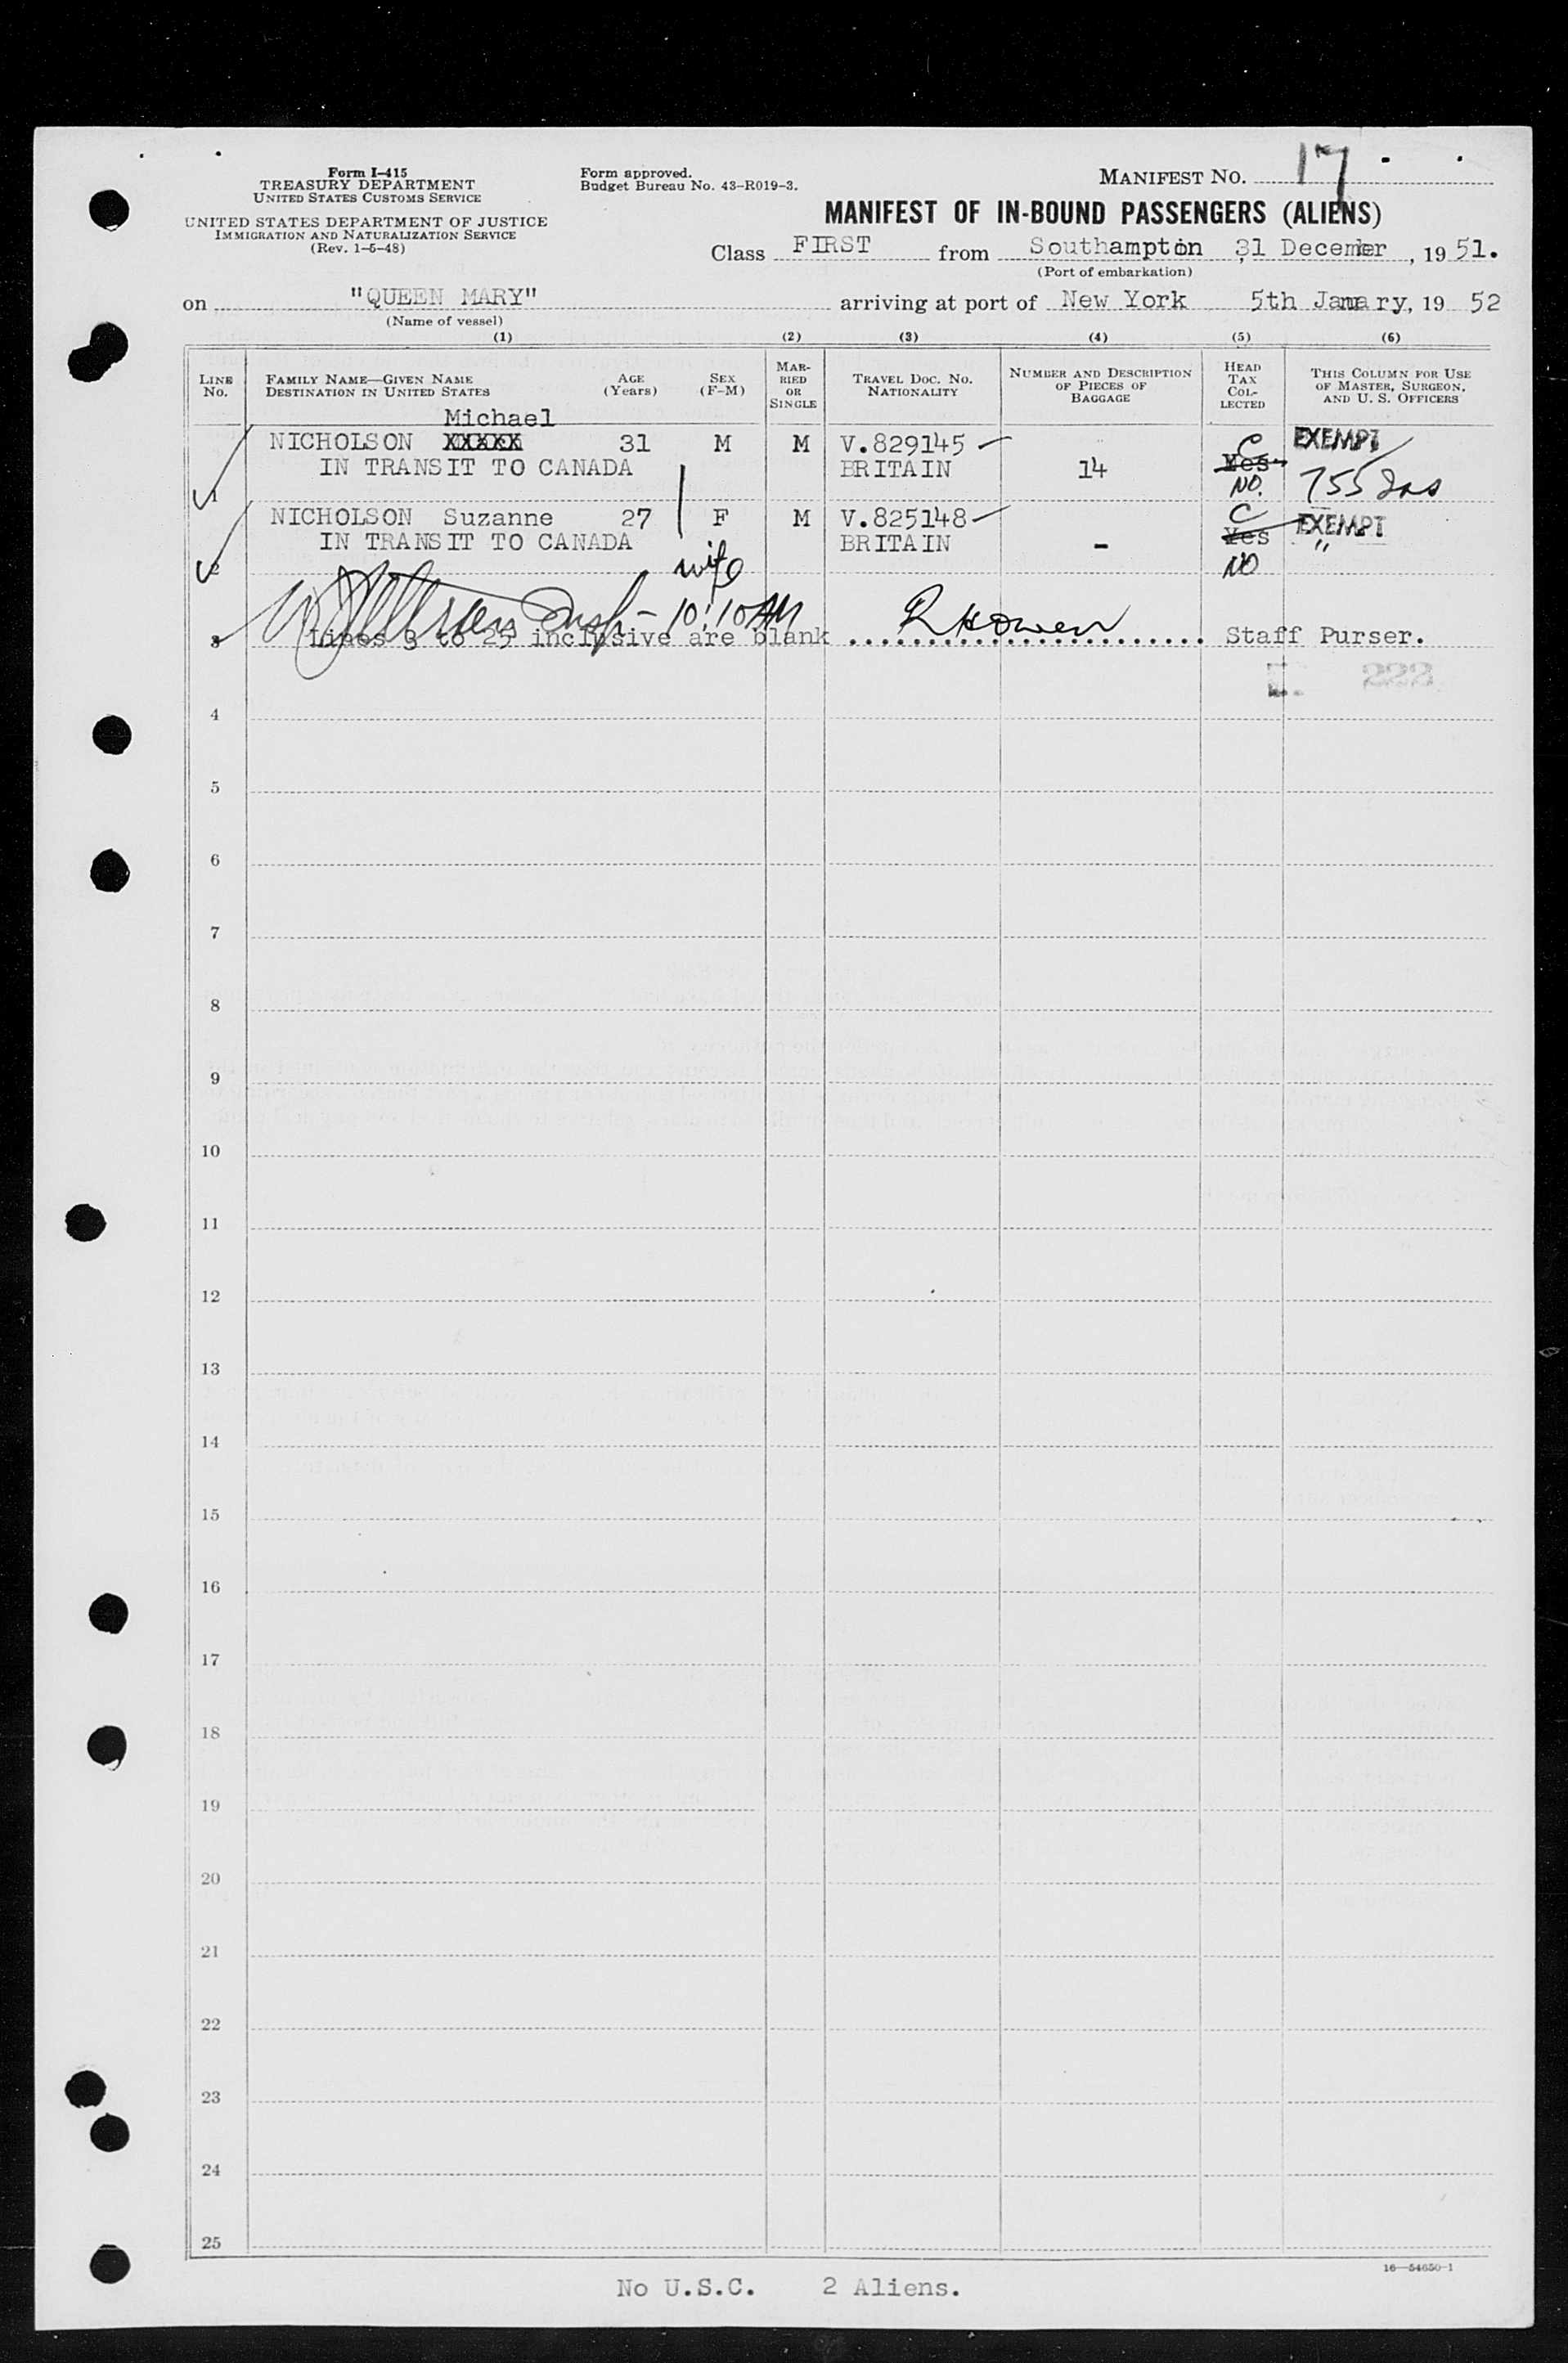 Form I-415
TREASURY DEPARTMENT
UNITED STATES CUSTOMS SERVICE
UNITED STATES DEPARTMENT OF JUSTICE
IMMIGRATION AND NATURALIZATION SERVICE
(Rev. 1-6-48)
Form approved.
Budget Bureau No. 43-R019-3.
MANIFEST NO. 17
MANIFEST OF IN-BOUND PASSENGERS (ALIENS)
Class FIRST from Southampton 31 December, 19 51.
(Port of embarkation)
on "QUEEN MARY" arriving at port of New York 5th January, 19 52
(Name of vessel)
(1) (2) (3) (4) (5) (6)
LINE NO. FAMILY NAME—GIVEN NAME DESTINATION IN UNITED STATES AGE (Years) SEX (F-M) MARRIED OR SINGLE TRAVEL DOC. NO. NATIONALITY NUMBER AND DESCRIPTION OF PIECES OF BAGGAGE HEAD TAX COLLECTED THIS COLUMN FOR USE OF MASTER, SURGEON, AND U. S. OFFICERS
Michael
NICHOLSON XXXXX 31 M M V.829145 C EXEMPT
IN TRANSIT TO CANADA BRITAIN 14 Yes
1 NO. 755
NICHOLSON Suzanne 27 F M V.825148 C EXEMPT
IN TRANSIT TO CANADA BRITAIN - Yes "
2 wife NO
10:10 AM R H Owen
3 Lines 3 to 25 inclusive are blank ........................ Staff Purser.
222
4
5
6
7
8
9
10
11
12
13
14
15
16
17
18
19
20
21
22
23
24
25
16—54650-1
No U.S.C. 2 Aliens.